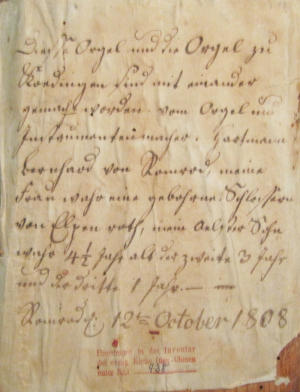 Diese Orgel und die Orgel zu
Noedingen sind mit einander
gemacht worden. vom Orgel und
Instrumentenmacher. Hartmann
Bernhard von Romrod, meine
Frau wahr eine gebohrne Schlossern
von Elpenroth, mein Aelster Sohn
wahr 4½ Jahr alt der zweite 3 Jahr
und der dritte 1 Jahr. —
Romrod d. 12ten October 1808
Eingetragen in das Inventar
der evang. Kirche
unter Nr.